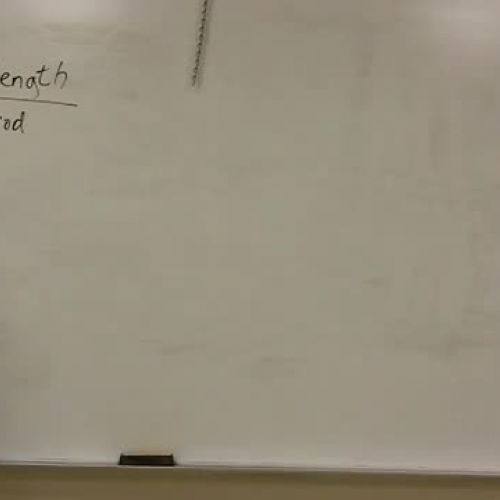 ength
od